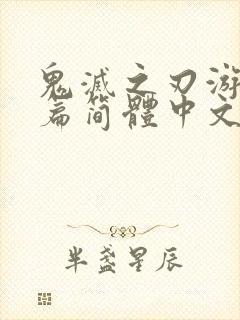 鬼滅之刃游
篇简體中文
半盏星辰